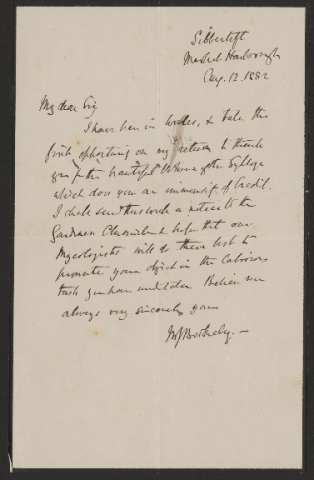 Sibbertoft
Market Harborough
Aug. 12. 1882
My dear Sir
I have been in Wales, & take the
first opportunity on my return to thank
you for the beautiful volume of the Sylloge
which does you an immensity of Credit.
I shall send this week a notice to the
Gardeners Chronicle & hope that our
Mycologists will do their best to
promote your object in the laborious
task you have undertaken. Believe me
always very sincerely yours
MJ Berkeley